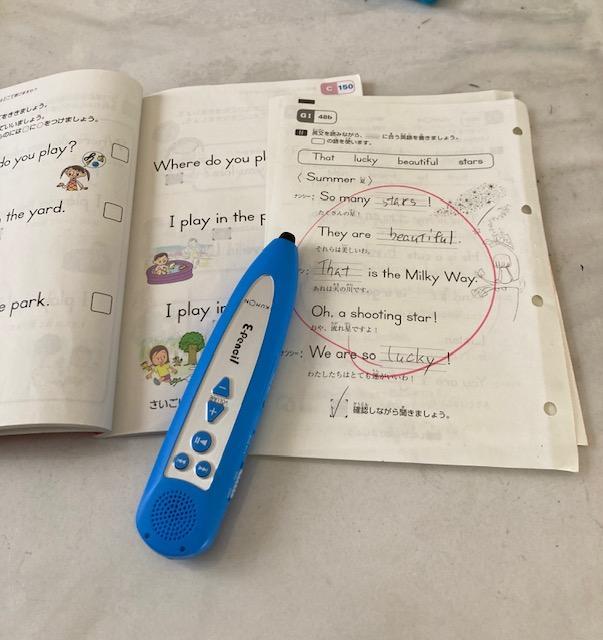 ききましょう。
ていいましょう。
ものには□に○をつけましょう。
do you play?
the yard.
e park.
C 150
Where do you pl
I play in the p
I play in
さいご
G I 48b
英文を読みながら、 に合う英語を書きましょう。
の語を使います。
That lucky beautiful stars
〈 Summer 夏 〉
ナンシー: So many stars !
たくさんの星!
They are beautiful.
それらは美しいわ。
: That is the Milky Way.
あれは天の川です。
Oh, a shooting star!
おや、流れ星ですよ!
ナンシー: We are so lucky !
わたしたちはとても運がいいわ!
確認しながら聞きましょう。
KUMON
E-Pencil
VOLUME